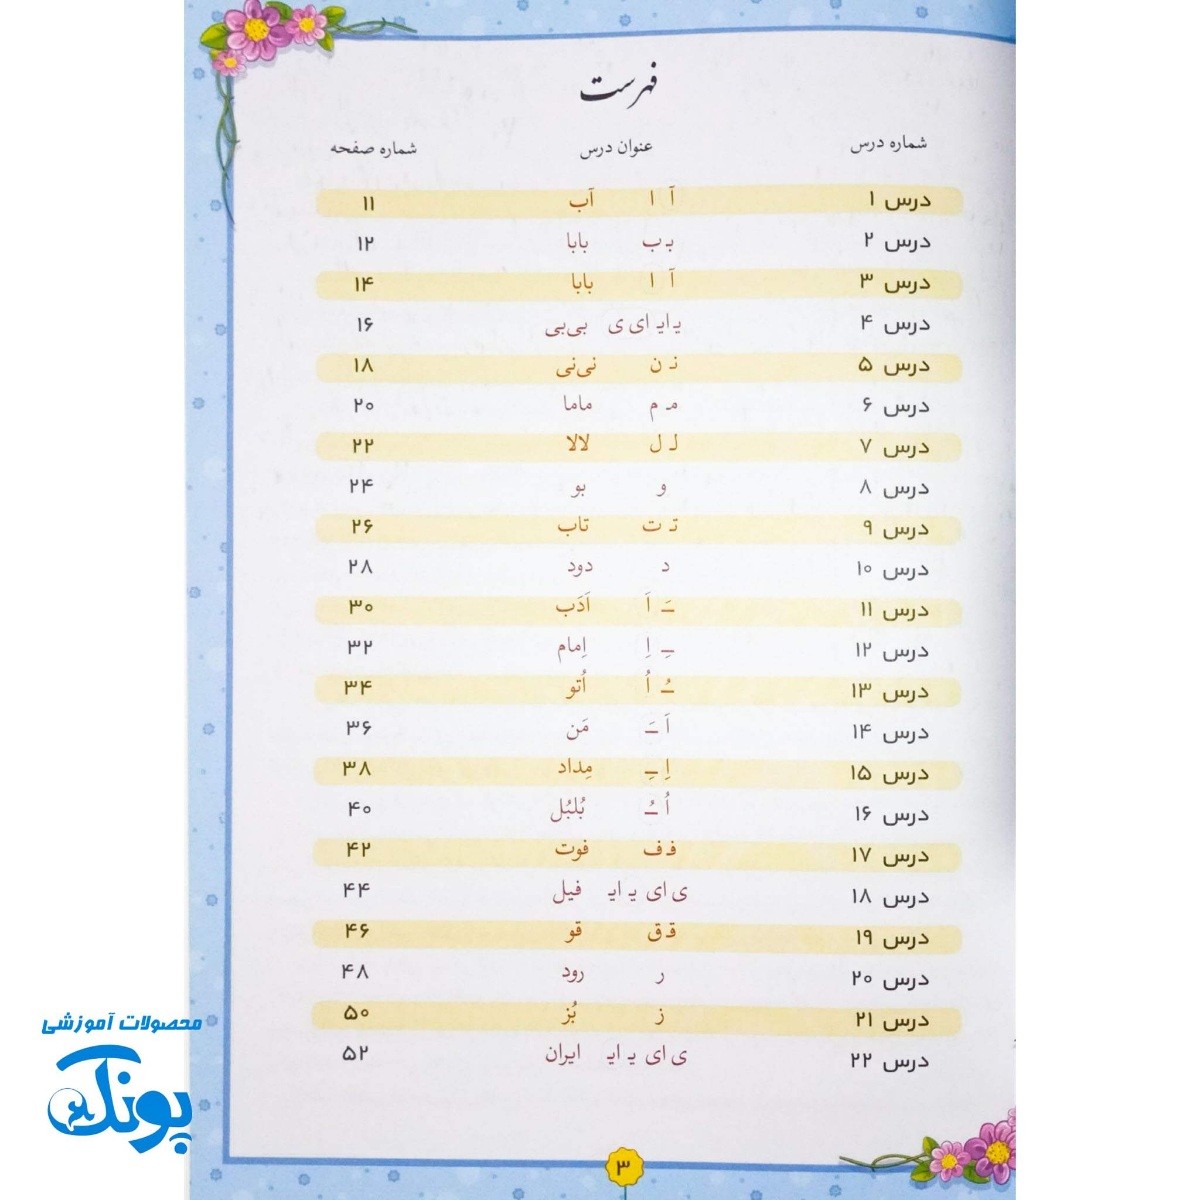 فهرست
شماره درس عنوان درس شماره صفحه
درس ۱ آ ا آب ۱۱
درس ۲ بـ ب بابا ۱۲
درس ۳ آ ا بابا ۱۴
درس ۴ یـ ایـ ای ی بی‌بی ۱۶
درس ۵ نـ ن نی‌نی ۱۸
درس ۶ مـ م ماما ۲۰
درس ۷ لـ ل لالا ۲۲
درس ۸ و بو ۲۴
درس ۹ تـ ت تاب ۲۶
درس ۱۰ د دود ۲۸
درس ۱۱ ـَ اَ اَدَب ۳۰
درس ۱۲ ـِ اِ اِمام ۳۲
درس ۱۳ ـُ اُ اُتو ۳۴
درس ۱۴ اَ ـَ مَن ۳۶
درس ۱۵ اِ ـِ مِداد ۳۸
درس ۱۶ اُ ـُ بُلبُل ۴۰
درس ۱۷ فـ ف فوت ۴۲
درس ۱۸ ی ای یـ ایـ فیل ۴۴
درس ۱۹ قـ ق قو ۴۶
درس ۲۰ ر رود ۴۸
درس ۲۱ ز بُز ۵۰
درس ۲۲ ی ای یـ ایـ ایران ۵۲
۳
محصولات آموزشی
پونک